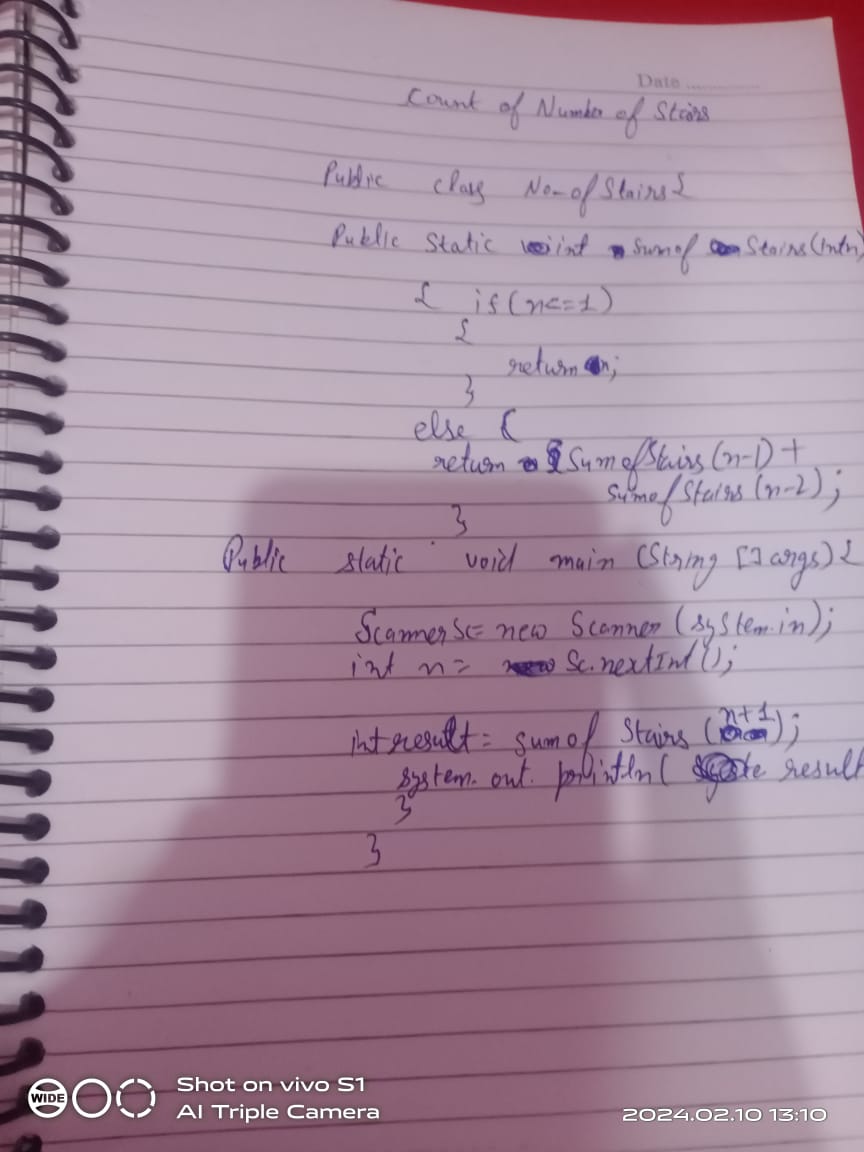 Date
Count of Number of Stairs
Public class No-of Stairs {
Public Static int Sumof Stairs (int n)
{ if (n<=1)
{
return n;
}
else {
return Sumof Stairs (n-1) +
Sumof Stairs (n-2);
}
Public static void main (String [] args) {
Scanner Sc= new Scanner (system.in);
int n= Sc.nextInt ();
int result= sumof Stairs (n+1);
system.out.println( result
}
}
WIDE
Shot on vivo S1
AI Triple Camera
2024.02.10 13:10